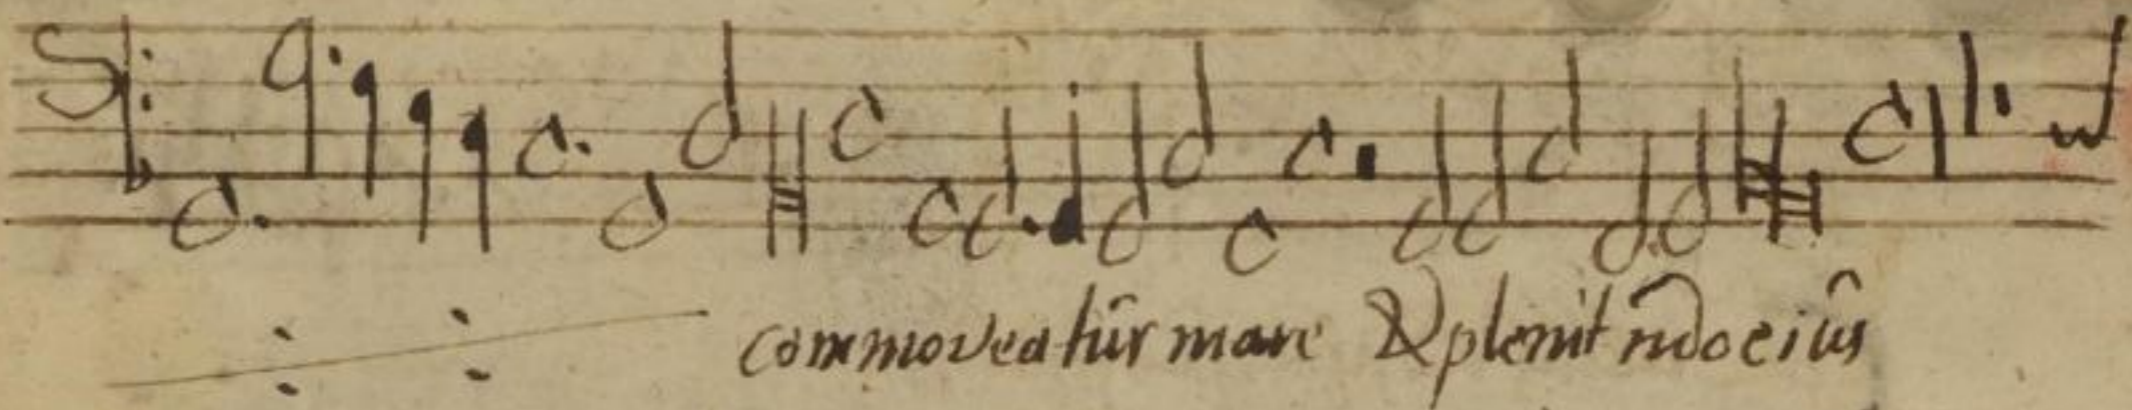 commoveatur mare & plenitudo eius